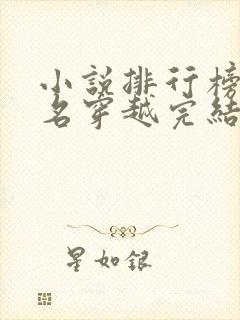 小說排行榜
名穿越完結
星如銀